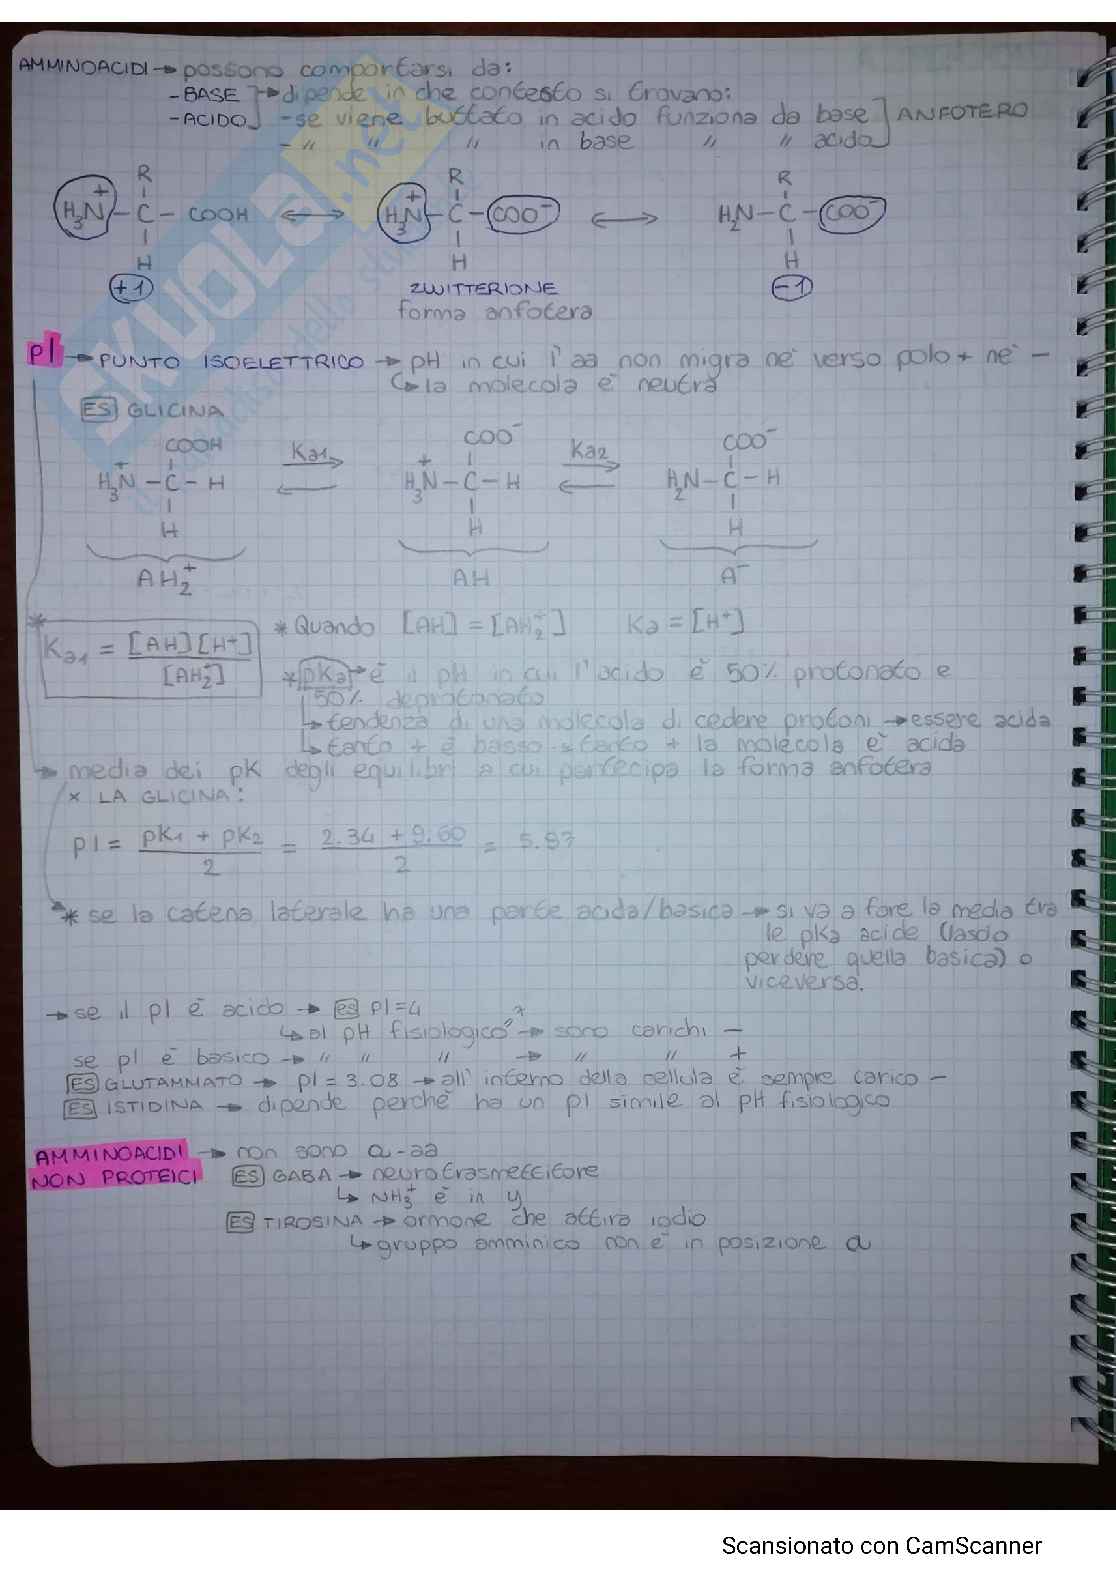 AMMINOACIDI → possono comportarsi da:
- BASE ] → dipende in che contesto si trovano:
- ACIDO ] - se viene buttato in acido funziona da base ] ANFOTERO
- " " " in base " " acido ]
R R R
H₃N⁺ - C - COOH ⟷ H₃N⁺ - C - COO⁻ ⟷ H₂N - C - COO⁻
H H H
+1 ZWITTERIONE -1
forma anfotera
pI → PUNTO ISOELETTRICO → pH in cui l'aa non migra nè verso polo + nè -
↳ la molecola è neutra
ES GLICINA
COOH COO⁻ COO⁻
H₃N⁺ - C - H Ka1 ⇌ H₃N⁺ - C - H Ka2 ⇌ H₂N - C - H
H H H
AH₂⁺ AH A⁻
* Ka1 = [AH][H⁺] / [AH₂⁺]
* Quando [AH] = [AH₂⁺] Ka = [H⁺]
* pKa → è il pH in cui l'acido è 50% protonato e
50% deprotonato
↳ tendenza di una molecola di cedere protoni → essere acida
↳ tanto + è basso → tanto + la molecola è acida
→ media dei pK degli equilibri a cui partecipa la forma anfotera
x LA GLICINA:
pI = pK1 + pK2 / 2 = 2.34 + 9.60 / 2 = 5.97
* se la catena laterale ha una parte acida/basica → si va a fare la media tra
le pKa acide (lascio
perdere quella basica) o
viceversa.
→ se il pI è acido → ES pI=4
↳ al pH fisiologico 7 → sono carichi -
se pI è basico → " " " → " " +
ES GLUTAMMATO → pI = 3.08 → all'interno della cellula è sempre carico -
ES ISTIDINA → dipende perchè ha un pI simile al pH fisiologico
AMMINOACIDI → non sono α-aa
NON PROTEICI ES GABA → neurotrasmettitore
↳ NH₃⁺ è in γ
ES TIROSINA → ormone che attira iodio
↳ gruppo amminico non è in posizione α
SKUOLA.net
Scansionato con CamScanner